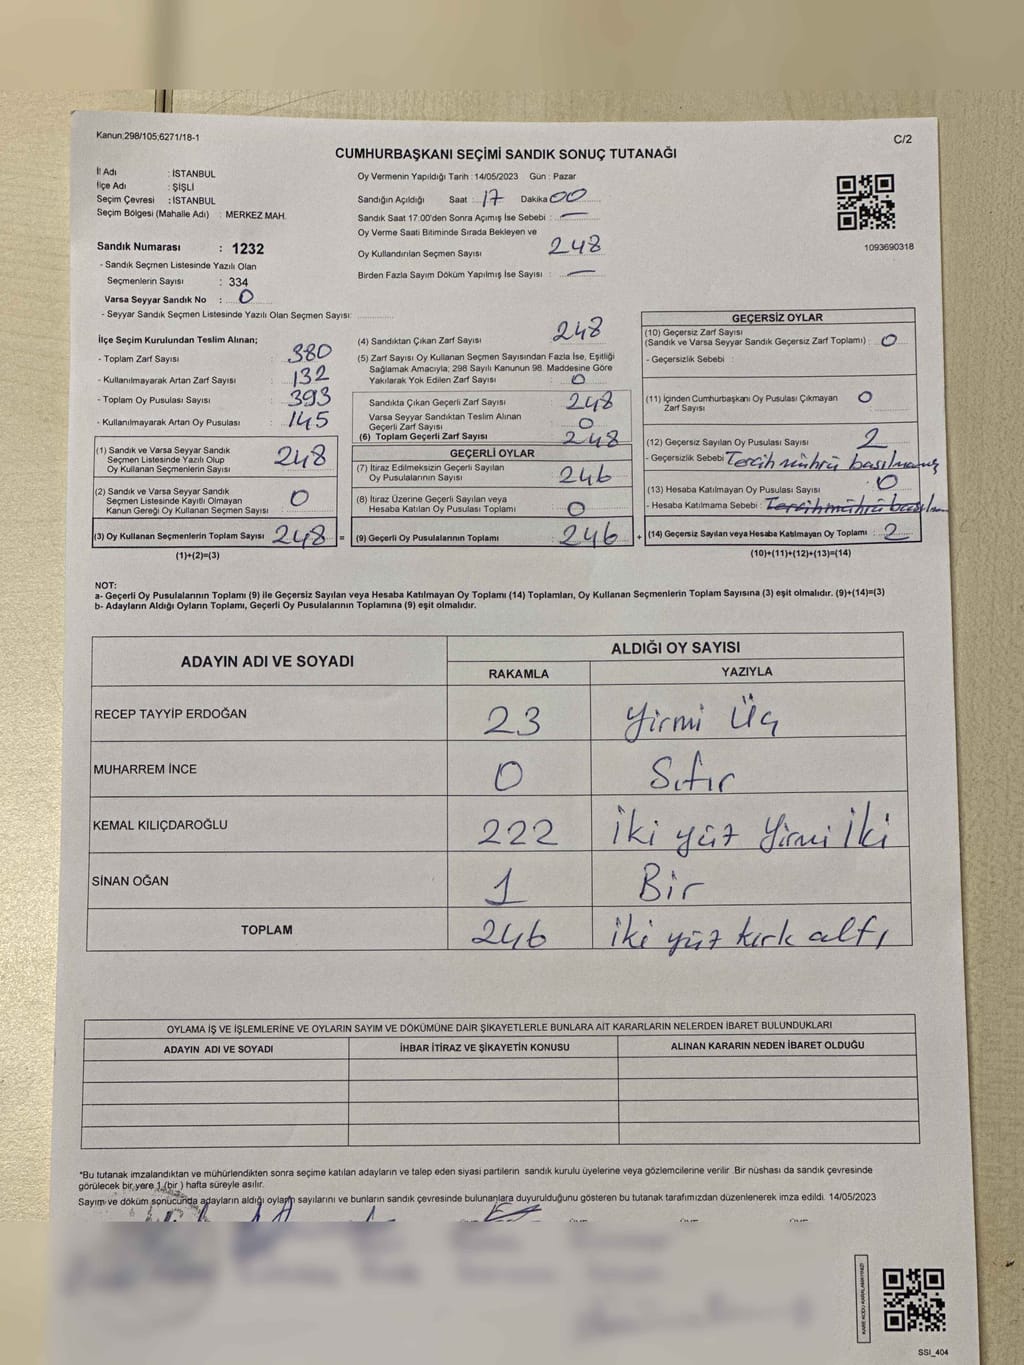 Kanun;298/105,6271/18-1
C/2
CUMHURBAŞKANI SEÇİMİ SANDIK SONUÇ TUTANAĞI
İl Adı : İSTANBUL
İlçe Adı : ŞİŞLİ
Seçim Çevresi : İSTANBUL
Seçim Bölgesi (Mahalle Adı) : MERKEZ MAH.
Sandık Numarası : 1232
- Sandık Seçmen Listesinde Yazılı Olan
Seçmenlerin Sayısı : 334
Varsa Seyyar Sandık No : 0
- Seyyar Sandık Seçmen Listesinde Yazılı Olan Seçmen Sayısı:
Oy Vermenin Yapıldığı Tarih : 14/05/2023 Gün : Pazar
Sandığın Açıldığı Saat : 17 Dakika 00
Sandık Saat 17:00'den Sonra Açımış İse Sebebi : —
Oy Verme Saati Bitiminde Sırada Bekleyen ve
Oy Kullandırılan Seçmen Sayısı 248
Birden Fazla Sayım Döküm Yapılmış İse Sayısı : —
1093690318
İlçe Seçim Kurulundan Teslim Alınan;
- Toplam Zarf Sayısı : 380
- Kullanılmayarak Artan Zarf Sayısı : 132
- Toplam Oy Pusulası Sayısı : 393
- Kullanılmayarak Artan Oy Pusulası : 145
(1) Sandık ve Varsa Seyyar Sandık
Seçmen Listesinde Yazılı Olup
Oy Kullanan Seçmenlerin Sayısı : 248
(2) Sandık ve Varsa Seyyar Sandık
Seçmen Listesinde Kayıtlı Olmayan
Kanun Gereği Oy Kullanan Seçmen Sayısı : 0
(3) Oy Kullanan Seçmenlerin Toplam Sayısı : 248 =
(1)+(2)=(3)
(4) Sandıktan Çıkan Zarf Sayısı : 248
(5) Zarf Sayısı Oy Kullanan Seçmen Sayısından Fazla İse, Eşitliği
Sağlamak Amacıyla; 298 Sayılı Kanunun 98. Maddesine Göre
Yakılarak Yok Edilen Zarf Sayısı : 0
Sandıkta Çıkan Geçerli Zarf Sayısı : 248
Varsa Seyyar Sandıktan Teslim Alınan
Geçerli Zarf Sayısı : 0
(6) Toplam Geçerli Zarf Sayısı : 248
GEÇERLİ OYLAR
(7) İtiraz Edilmeksizin Geçerli Sayılan
Oy Pusulalarının Sayısı : 246
(8) İtiraz Üzerine Geçerli Sayılan veya
Hesaba Katılan Oy Pusulaları Toplamı : 0
(9) Geçerli Oy Pusulalarının Toplamı : 246 +
GEÇERSİZ OYLAR
(10) Geçersiz Zarf Sayısı
(Sandık ve Varsa Seyyar Sandık Geçersiz Zarf Toplamı) : 0
- Geçersizlik Sebebi :
(11) İçinden Cumhurbaşkanı Oy Pusulası Çıkmayan
Zarf Sayısı : 0
(12) Geçersiz Sayılan Oy Pusulası Sayısı : 2
- Geçersizlik Sebebi : Tercih mührü basılmamış
(13) Hesaba Katılmayan Oy Pusulası Sayısı : 0
- Hesaba Katılmama Sebebi : Tercih mührü
(14) Geçersiz Sayılan veya Hesaba Katılmayan Oy Toplamı : 2
(10)+(11)+(12)+(13)=(14)
NOT:
a- Geçerli Oy Pusulalarının Toplamı (9) ile Geçersiz Sayılan veya Hesaba Katılmayan Oy Toplamı (14) Toplamları, Oy Kullanan Seçmenlerin Toplam Sayısına (3) eşit olmalıdır. (9)+(14)=(3)
b- Adayların Aldığı Oyların Toplamı, Geçerli Oy Pusulalarının Toplamına (9) eşit olmalıdır.
ADAYIN ADI VE SOYADI
ALDIĞI OY SAYISI
RAKAMLA YAZIYLA
RECEP TAYYİP ERDOĞAN 23 Yirmi Üç
MUHARREM İNCE 0 Sıfır
KEMAL KILIÇDAROĞLU 222 İki yüz Yirmi İki
SİNAN OĞAN 1 Bir
TOPLAM 246 iki yüz kırk altı
OYLAMA İŞ VE İŞLEMLERİNE VE OYLARIN SAYIM VE DÖKÜMÜNE DAİR ŞİKAYETLERLE BUNLARA AİT KARARLARIN NELERDEN İBARET BULUNDUKLARI
ADAYIN ADI VE SOYADI İHBAR İTİRAZ VE ŞİKAYETİN KONUSU ALINAN KARARIN NEDEN İBARET OLDUĞU
*Bu tutanak imzalandıktan ve mühürlendikten sonra seçime katılan adayların ve talep eden siyasi partilerin sandık kurulu üyelerine veya gözlemcilerine verilir .Bir nüshası da sandık çevresinde
görülecek bir yere 1 (bir ) hafta süreyle asılır.
Sayım ve döküm sonucunda adayların aldığı oyların sayılarını ve bunların sandık çevresinde bulunanlara duyurulduğunu gösteren bu tutanak tarafımızdan düzenlenerek imza edildi. 14/05/2023
KARE KODU KARALAMAYINIZ!
SSI_404